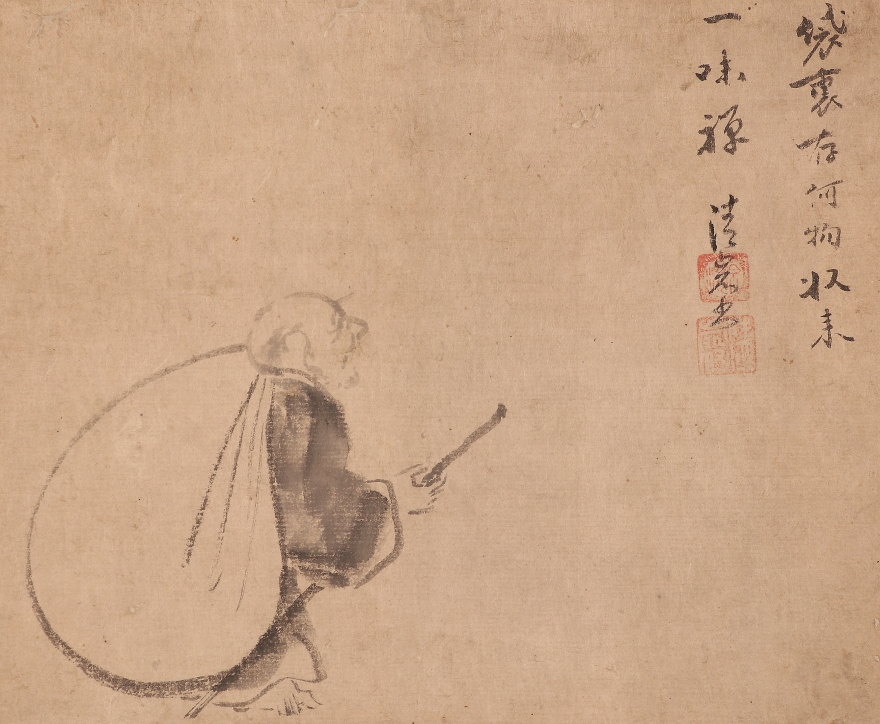 袋裏存何物収来
一味禅 清巖書